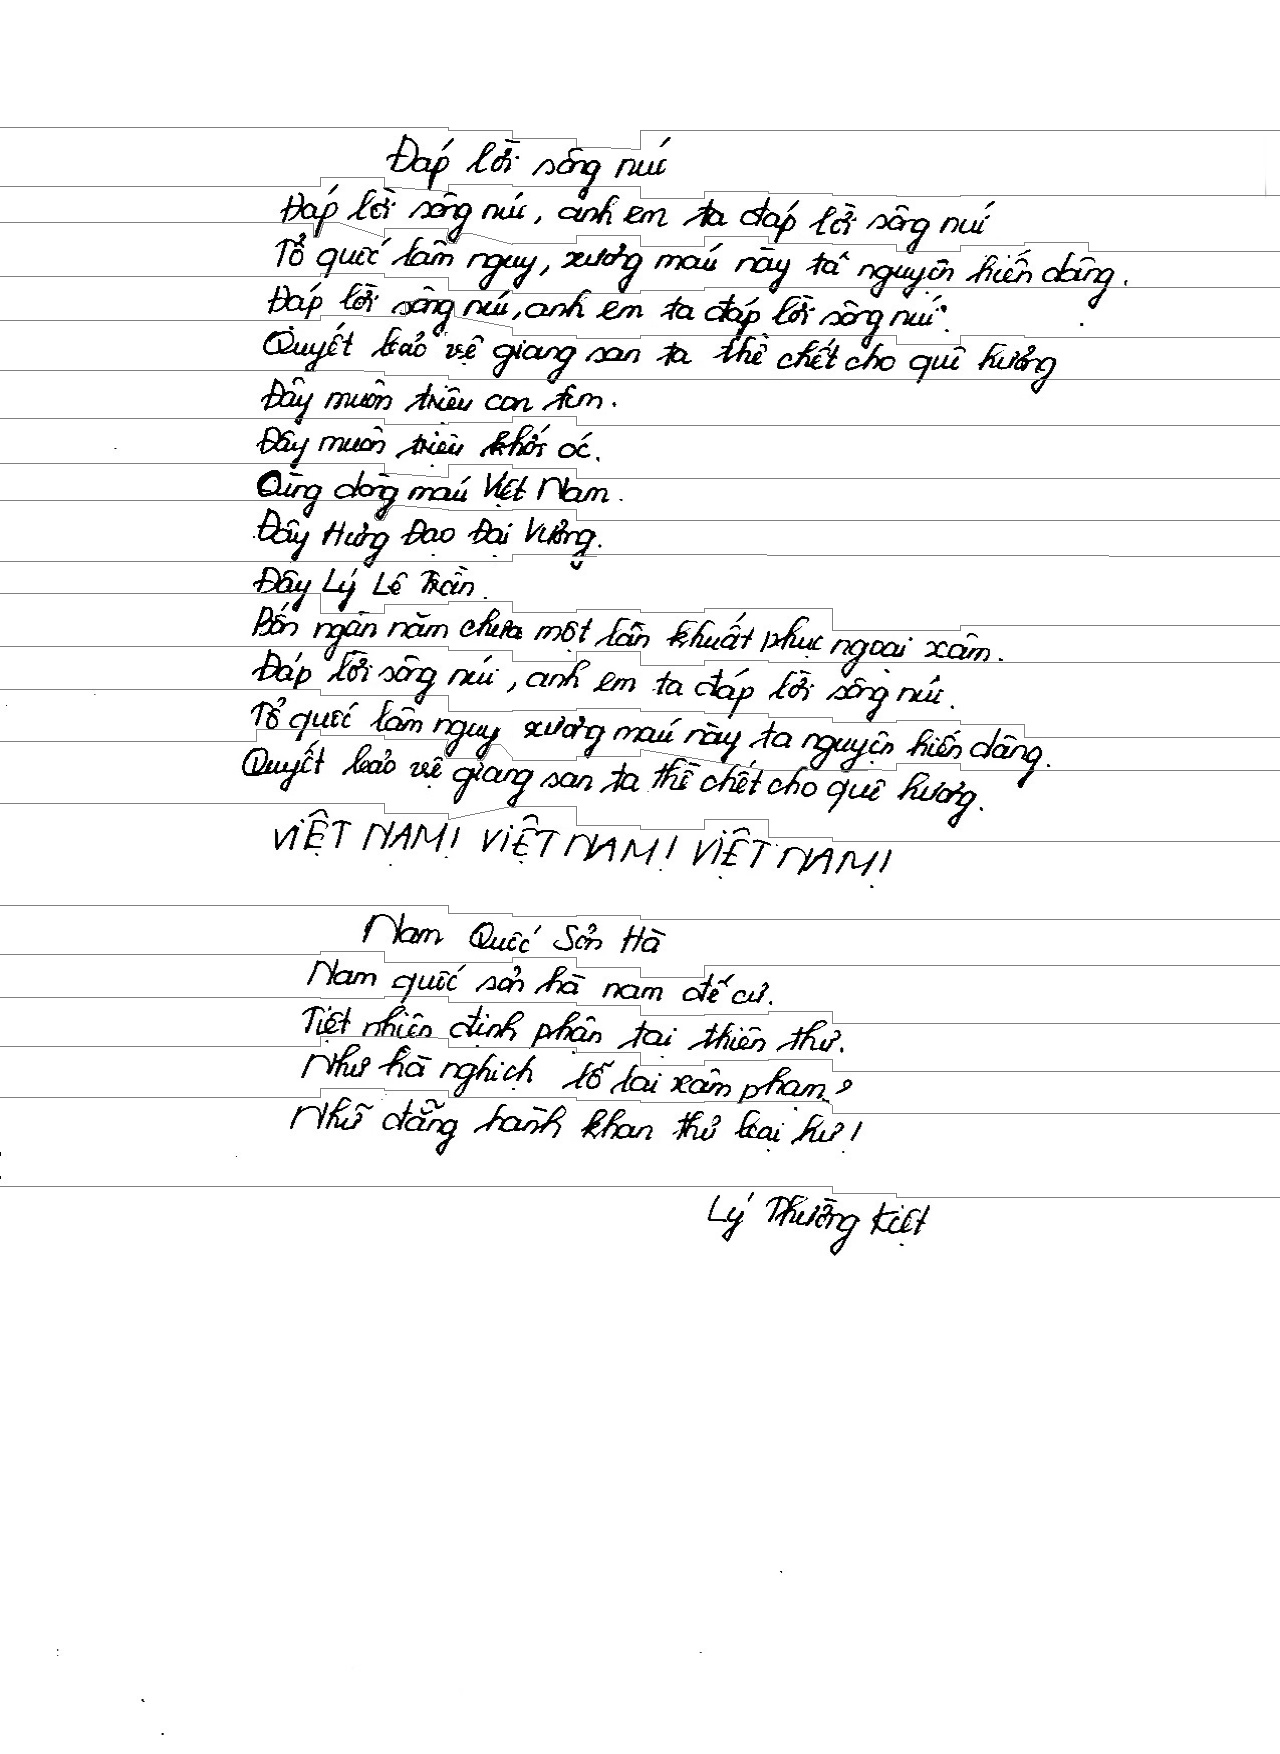 Đáp lời sông núi
Đáp lời sông núi, anh em ta đáp lời sông núi
Tổ quốc lâm nguy, xương máu này ta nguyện hiến dâng.
Đáp lời sông núi, anh em ta đáp lời sông núi.
Quyết bảo vệ giang san ta thề chết cho quê hương
Đây muôn triệu con tim.
Đây muôn triệu khối óc.
Cùng dòng máu Việt Nam.
Đây Hưng Đạo Đại Vương.
Đây Lý Lê Trần.
Bốn ngàn năm chưa một lần khuất phục ngoại xâm.
Đáp lời sông núi, anh em ta đáp lời sông núi.
Tổ quốc lâm nguy xương máu này ta nguyện hiến dâng.
Quyết bảo vệ giang san ta thề chết cho quê hương.
VIỆT NAM! VIỆT NAM! VIỆT NAM!
Nam Quốc Sơn Hà
Nam quốc sơn hà nam đế cư.
Tiệt nhiên định phận tại thiên thư.
Như hà nghịch lỗ lai xâm phạm?
Nhữ đẳng hành khan thủ bại hư!
Lý Thường Kiệt